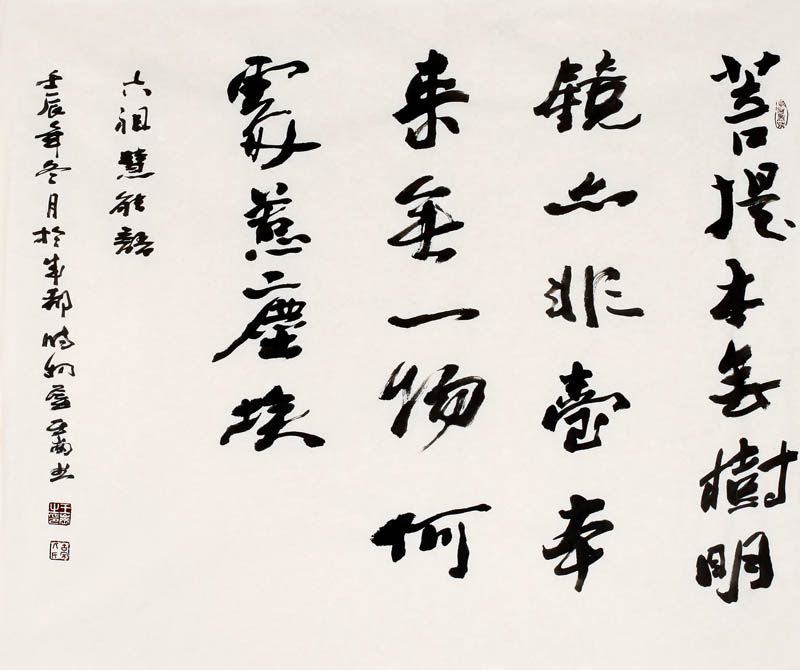 菩提本無樹明
鏡亦非臺本
来無一物何
處惹塵埃
六祖慧能語
壬辰年冬月於成都